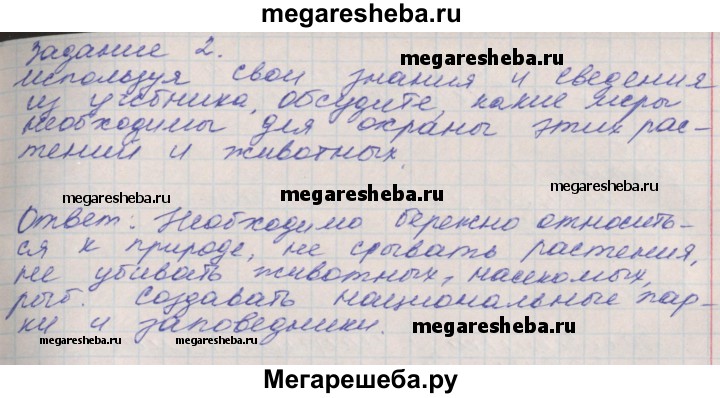 megaresheba.ru
Задание 2.
megaresheba.ru
Используя свои знания и сведения
из учебника, обсудите, какие меры
необходимы для охраны этих рас-
тений и животных.
megaresheba.ru
megaresheba.ru
Ответ: Необходимо бережно относить-
ся к природе, не срывать растения,
не убивать животных, насекомых,
рыб. Создавать национальные пар-
ки и заповедники.
megaresheba.ru
megaresheba.ru megaresheba.ru
Мегарешеба.ру